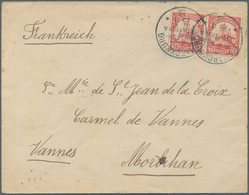 Frankreich
Sr. Mie de St Jean de la Croix
Carmel de Vannes
Vannes
Morbihan